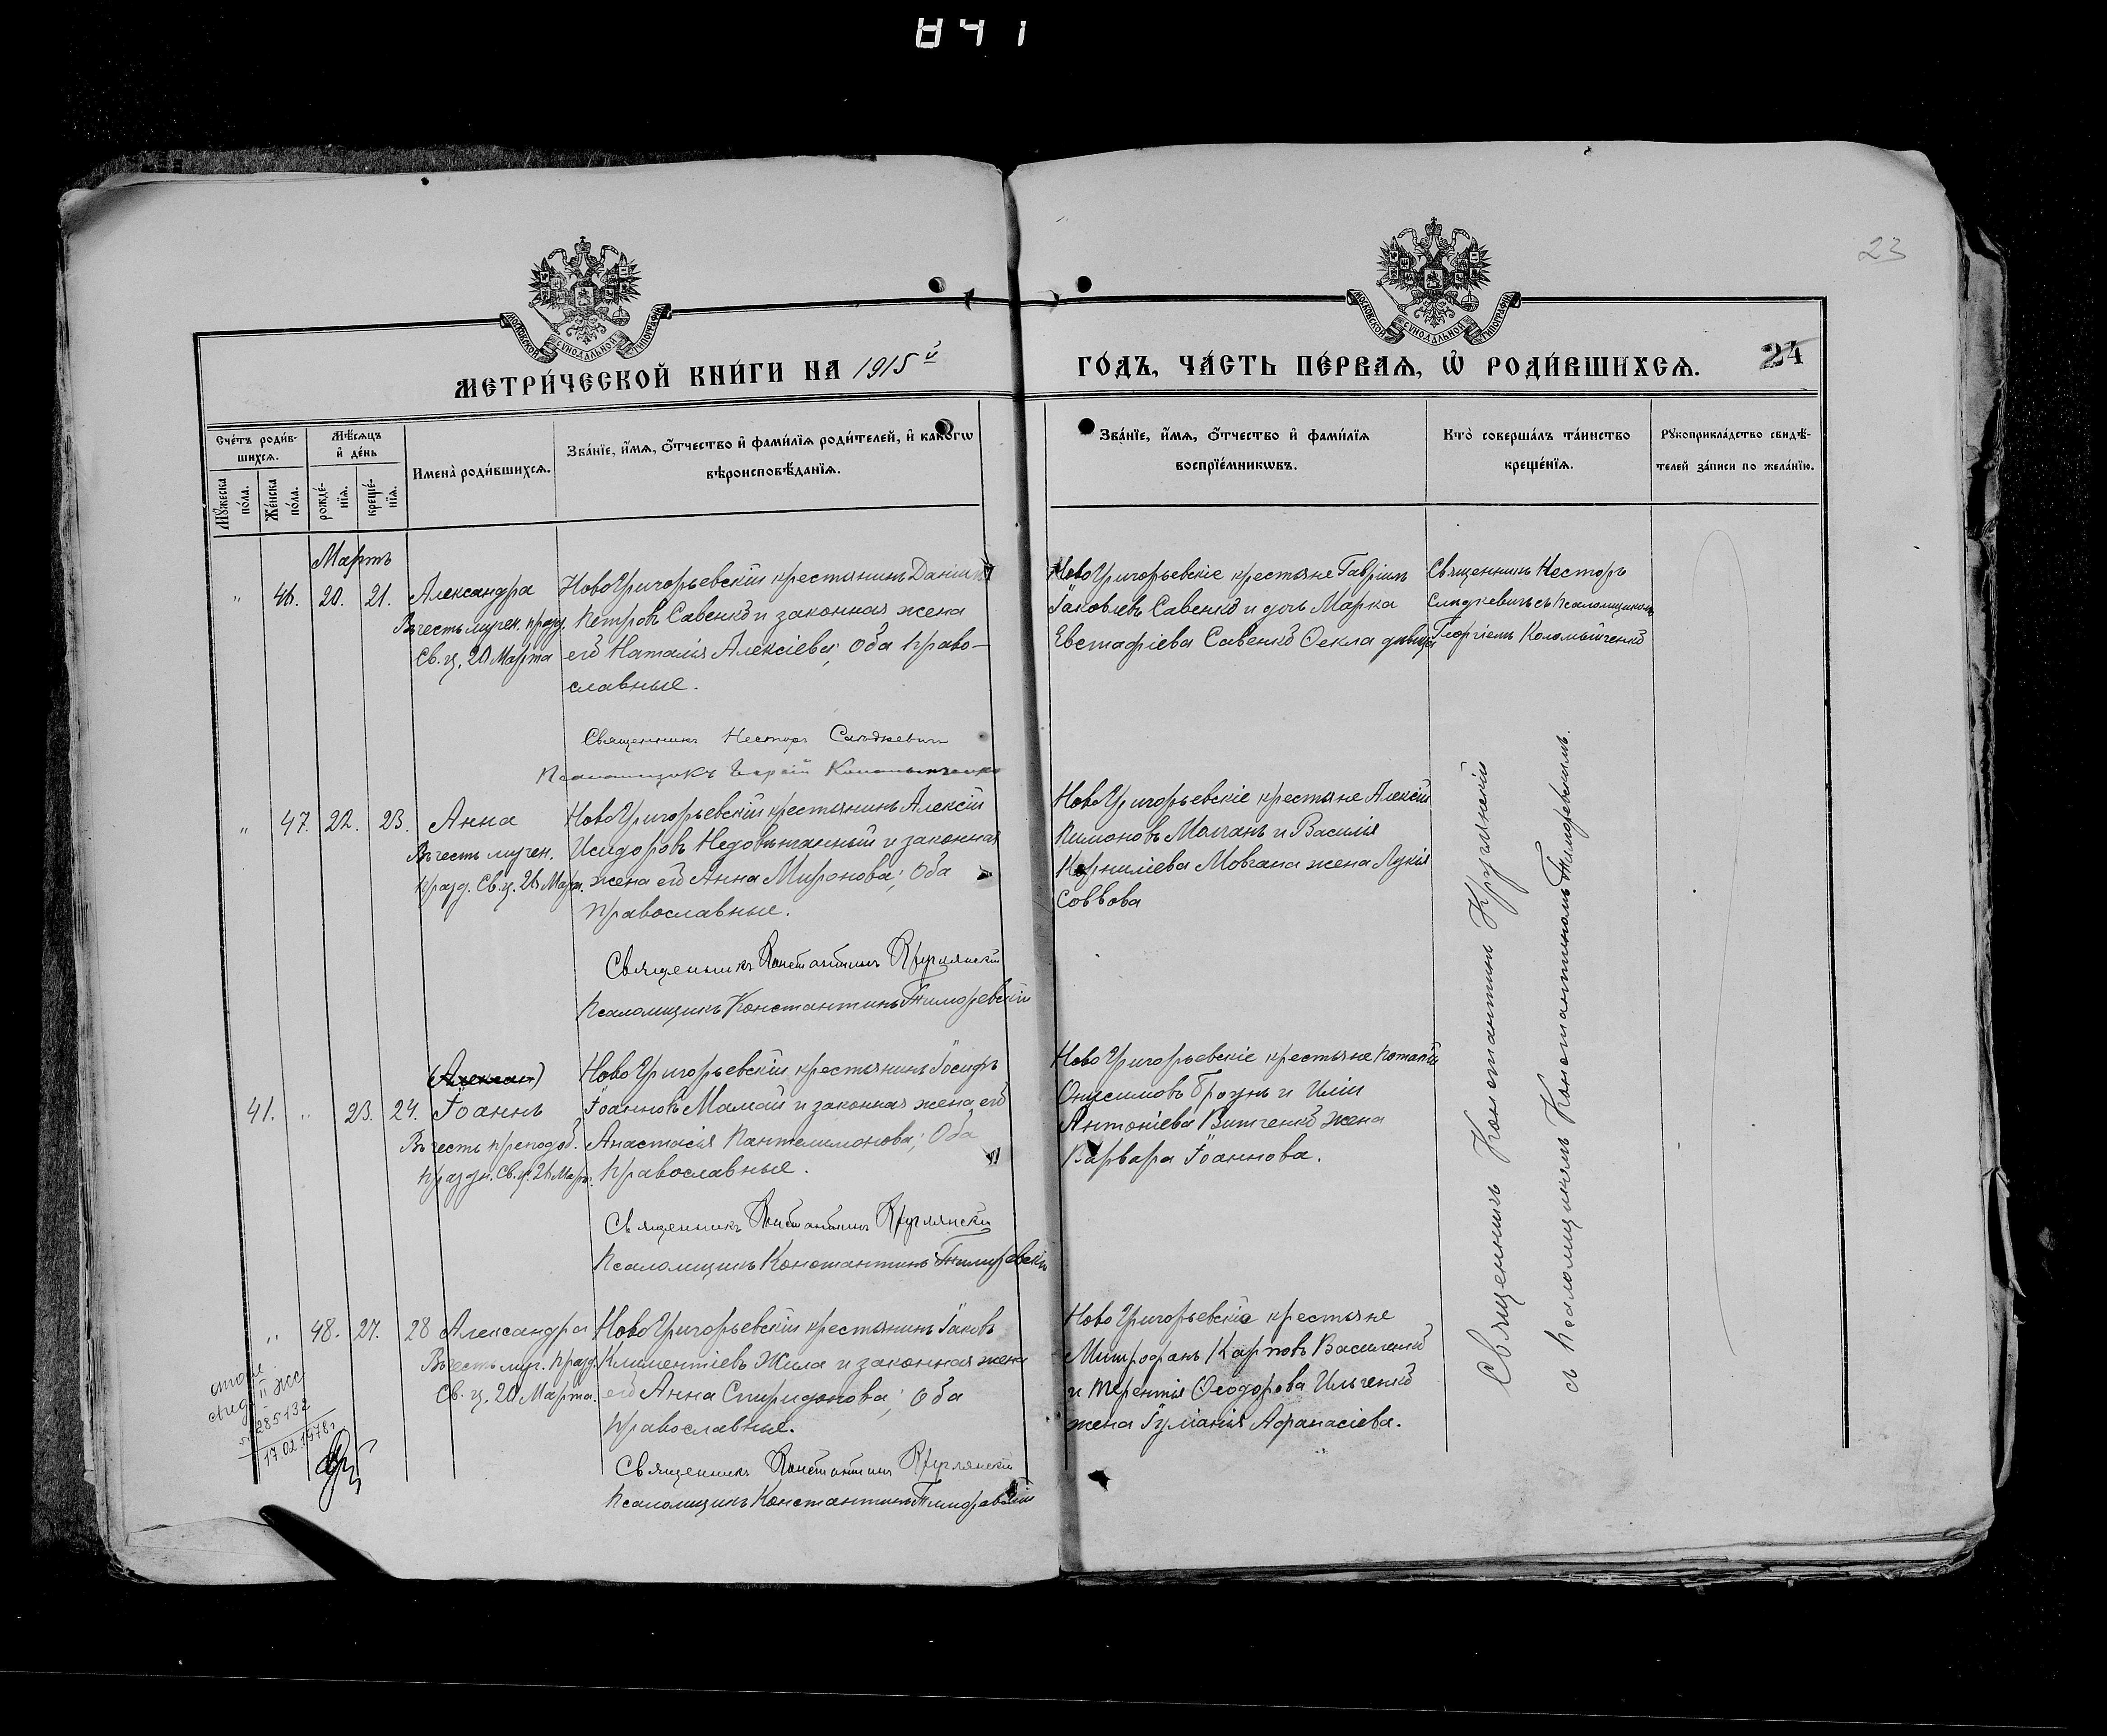 841
23
МОСКОВСКОЙ СѴНОДАЛЬНОЙ ТИПОГРАФІИ
МОСКОВСКОЙ СѴНОДАЛЬНОЙ ТИПОГРАФІИ
МЕТРИ́ЧЕСКОЙ КНИ́ГИ НА 1915 й
ГО́ДЪ, ЧА́СТЬ ПЕ́РВАѦ, Ѡ҆ РОДИ́ВШИХСѦ.
24
Сче́тъ роди́вшихсѧ.
Мꙋ́жеска по́ла.
Же́нска по́ла.
Мѣ́сѧцъ и҆ де́нь
рожде́нїѧ.
креще́нїѧ.
Имена̀ роди́вшихсѧ.
Зва́нїе, и҆́мѧ, ѻ҆́тчество и҆ фами́лїѧ роди́телей, и҆ како́гѡ
вѣроисповѣ́данїѧ.
Зва́нїе, и҆́мѧ, ѻ҆́тчество и҆ фами́лїѧ
воспрїе́мникѡвъ.
Кто̀ соверша́лъ та́инство
креще́нїѧ.
Рꙋкоприкла́дство свидѣ́-
телей за́писи по жела́нїю.
Мартъ
" 46. 20. 21.
Александра
Въ честь мучен. празд.
Св. ц. 20 Марта
НовоГригорьевскій крестьянинъ Даніилъ
Петровъ Савенко и законная жена
его Наталія Алексіева; оба право-
славные.
Священникъ Несторъ Сладкевичъ
Псаломщикъ Георгій Коломыйченко
НовоГригорьевскіе крестьяне Гавріилъ
Іаковлевъ Савенко и дочь Марка
Евстафіева Савенко Ѳекла дѣвица
Священникъ Несторъ
Сладкевичъ съ псаломщикомъ
Георгіемъ Коломыйченко
" 47. 22. 23.
Анна
Въ честь мучен.
празд. Св. ц. 20 Март.
НовоГригорьевскій крестьянинъ Алексій
Исидоровъ Недовѣнчанный и законная
жена его Анна Миронова; оба
православные.
Священникъ Константинъ Круглянскій
Псаломщикъ Константинъ Тиморевскій
НовоГригорьевскіе крестьяне Алексій
Пимоновъ Молчанъ и Василія
Корниліева Мовчана жена Лукія
Саввова
41. " 23. 24.
Іоаннъ
Въ честь преподоб.
НовоГригорьевскій крестьянинъ Іосифъ
Іоанновъ Мамай и законная жена его
Анастасія Пантелимонова; Оба
православные.
Священникъ Константинъ Круглянскій
Псаломщикъ Константинъ Тиморевскій
НовоГригорьевскіе крестьяне Потапій
Онисимовъ и Иліи
Антоніева Витченко жена
Варвара Іоаннова.
" 48. 27. 28
Александра
Въ честь муч. празд.
Св. ц. 20 Марта.
НовоГригорьевскій крестьянинъ Іаковъ
Климентіевъ Жила и законная жена
его Анна Спиридонова; оба
православные.
Священникъ Константинъ Круглянскій
Псаломщикъ Константинъ Тиморевскій
НовоГригорьевскіе крестьяне
Митрофанъ Карповъ Василенко
и Терентія Ѳеодорова Ильченко
жена Іуліанія Афанасіева.
Священникъ Константинъ Круглянскій
съ псаломщикомъ Константиномъ Тиморевскимъ.
285132
17.02.1978г